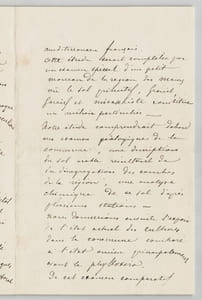 méditerranéen français
cette étude serait complétée par
un examen spécial d'un petit
morceau de la région des
où le sol primitif, granit,
et micaschiste constitue
un nature particulière. —
Notre étude comprendrait d'abord
un examen géologique de la
commune, une description
du sol arable résultant de
la désagrégation des roches
de la région, une analyse
chimique de ce sol dans
plusieurs stations —
nous donnerions ensuite l'exposé
de l'état actuel des cultures
dans la commune comparé
à l'état ancien principalement
avant le phylloxéra.
De cet examen comparatif